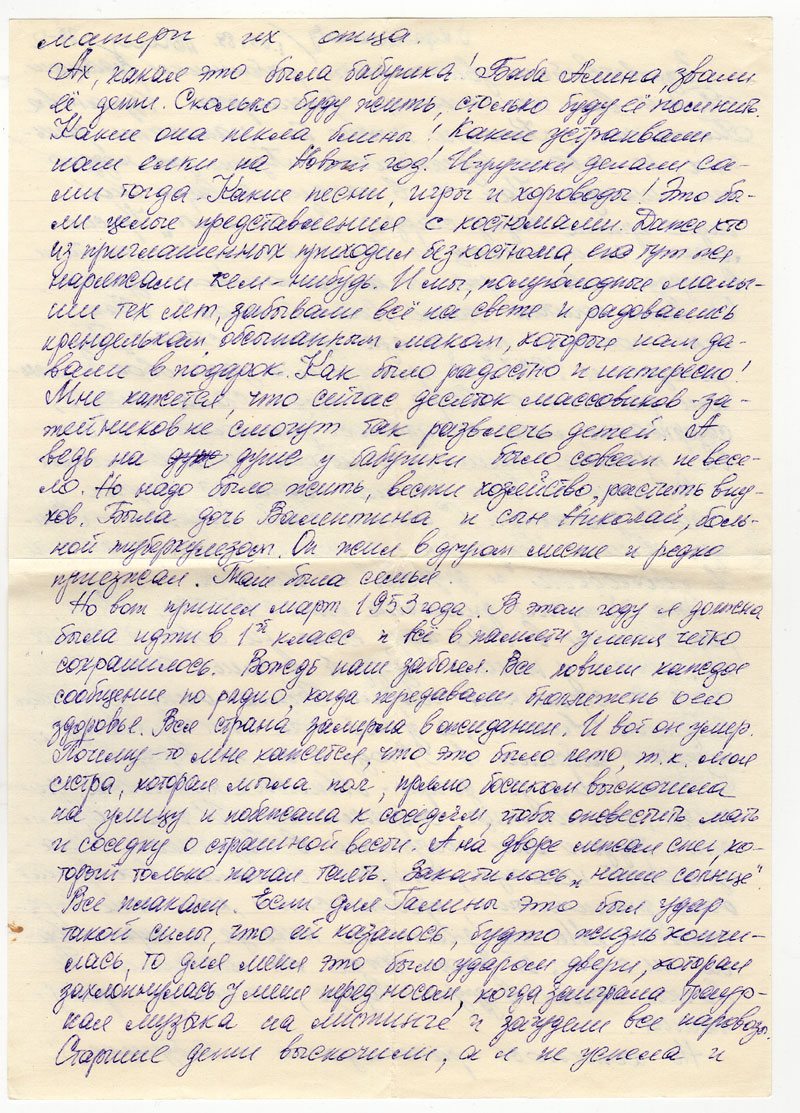 матери их отца.
Ах, какая это была бабушка! Баба Алина, звали
её дети. Сколько буду жить, столько буду её помнить.
Какие она пекла блины! Какие устраивали
нам елки на Новый год! Игрушки делали са-
ми тогда. Какие песни, игры и хороводы! Это бы-
ли целые представления с костюмами. Даже кто
из приглашенных приходил без костюма, его тут же
наряжали кем-нибудь. И мы, полуголодные малы-
ши тех лет, забывали всё на свете и радовались
кренделькам, обсыпанным маком, которые нам да-
вали в подарок. Как было радостно и интересно!
Мне кажется, что сейчас десяток массовиков-за-
тейников не смогут так развлечь детей. А
ведь на душе у бабушки было совсем невесе-
ло. Но надо было жить, вести хозяйство, растить вну-
ков. Была дочь Валентина и сын Николай, боль-
ной туберкулезом. Он жил в другом месте и редко
приезжал. Там была семья.
Но вот пришел март 1953 года. В этом году я должна
была идти в 1й класс и всё в памяти у меня четко
сохранилось. Вождь наш заболел. Все ловили каждое
сообщение по радио, когда передавали бюллетень о его
здоровье. Вся страна замерла в ожидании. И вот он умер.
Почему-то мне кажется, что это было лето, т.к. моя
сестра, которая мыла пол, прямо босиком выскочила
на улицу и побежала к соседям, чтобы оповестить мать
и соседку о страшной вести. А на дворе лежал снег, ко-
торый только начал таять. Закатилось „наше солнце".
Все плакали. Если для Галины это был удар
такой силы, что ей казалось, будто жизнь кончи-
лась, то для меня это было ударом двери, которая
захлопнулась у меня перед носом, когда заиграла траур-
ная музыка на митинге и загудели все паровозы.
Старшие дети выскочили, а я не успела и